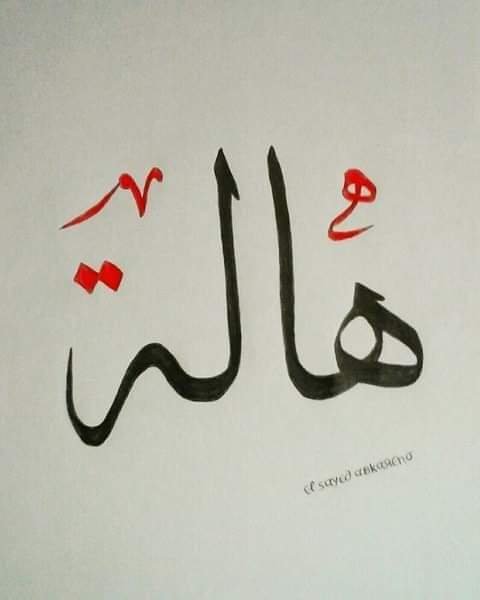 هالة
el sayed abkareno